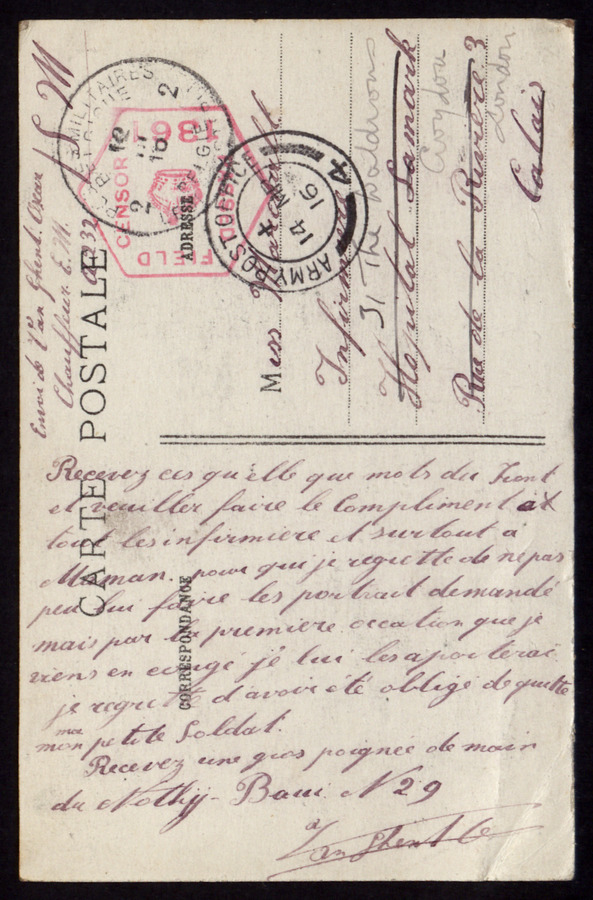 CARTE POSTALE
CORRESPONDANCE
ADRESSE
Envoi de Van Ghent. Oscar
Chauffeur E. M.
S M
POSTES MILITAIRES
BELGIQUE
2
16
2
FIELD CENSOR
1861
ARMY POST OFFICE
4
X
14
16
Miss
Infirmière
31 The Waldrons
Hopital Lamark
Croydon
Rue de la Rivière 3
London
Calais
Recevez ces qu'elle que mots du Front
et veuiller faire le Compliment at
tout les infirmiere et surtout a
Maman. pour qui je regrette de ne pas
peu lui faire les portrait demandé
mais par la premiere occation que je
viens en congé je lui les aporterai
je regrette d'avoir été obligé de quitte
ma
mon petite Soldat.
Recevez une gros poignée de main
du N 29
Van Ghent O